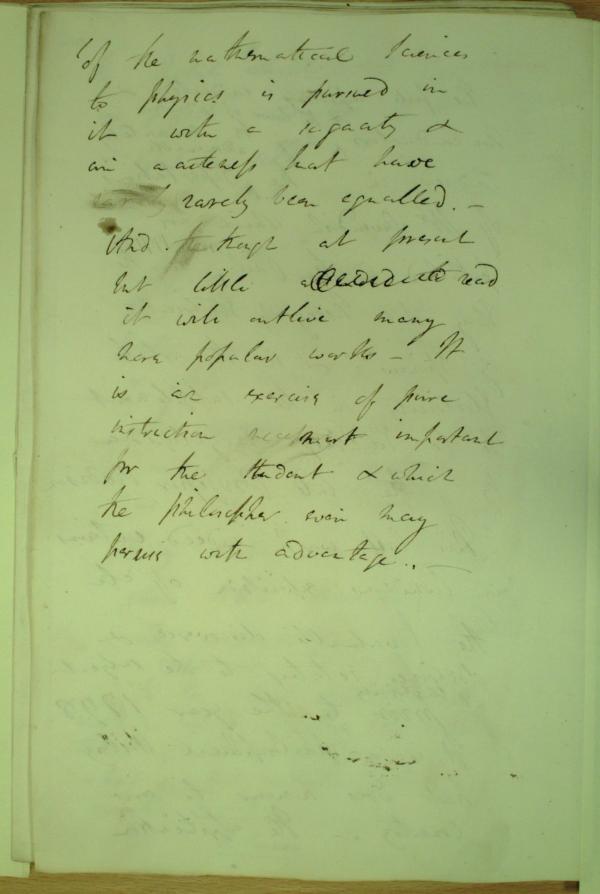 of the mathematical sciences
to physics is pursued in
it with a sagacity &
an acuteness that have
rarely been equalled. -
And though at present
but little read
it will outlive many
more popular works - It
is an exercise of pure
instruction most important
for the student & which
the philosopher even may
peruse with advantage. -